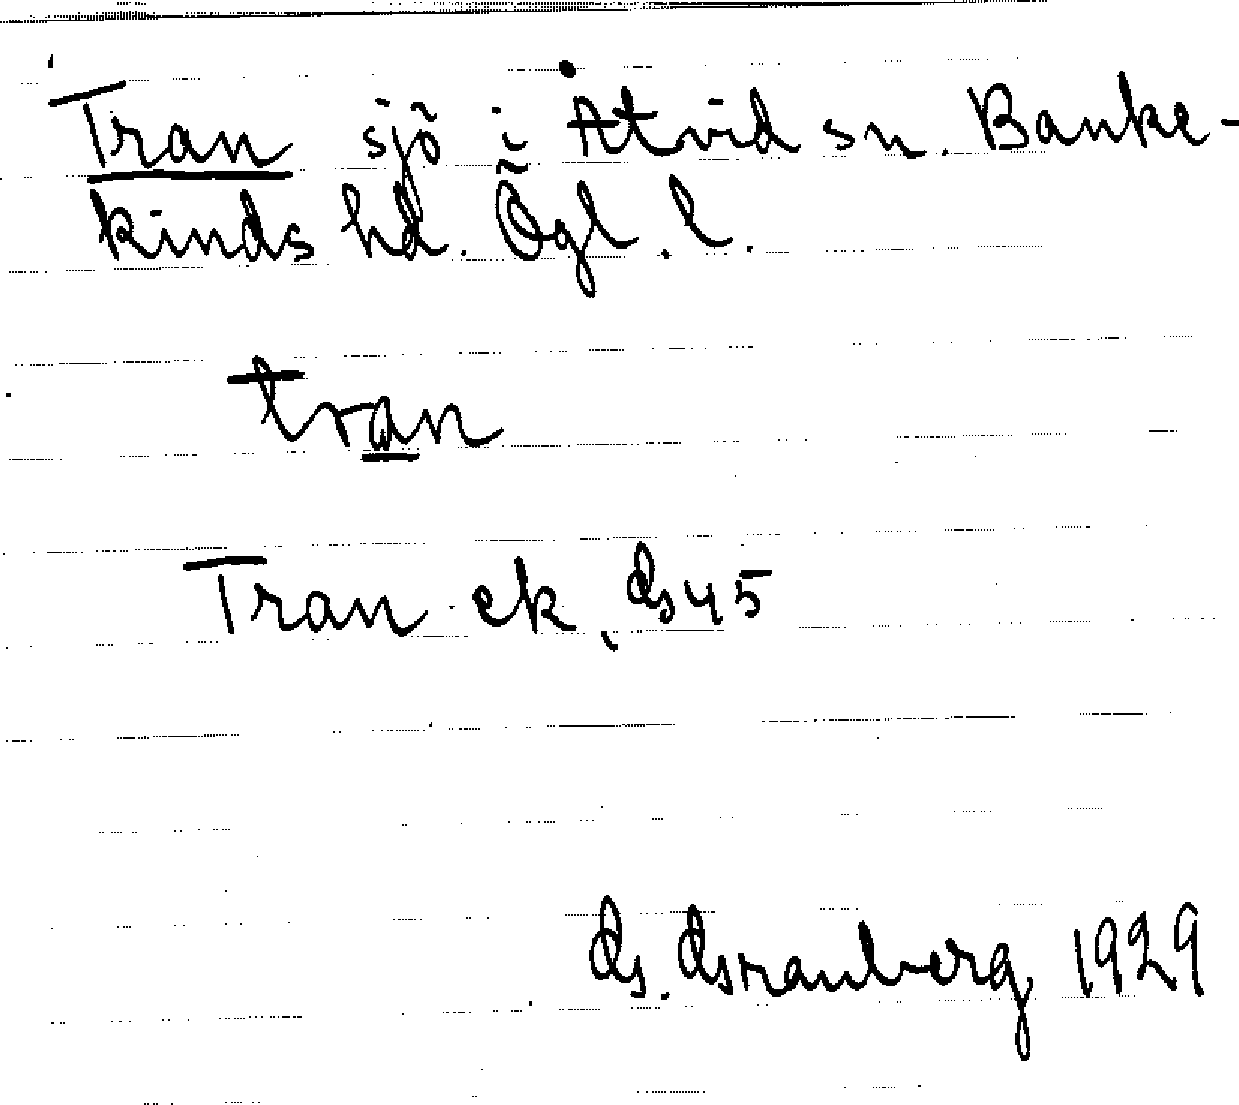 Tran sjö i Åtvid sn. Banke-
kinds hd. Ögl. l.
tran
Tran ek. G 45
G. Granberg 1929